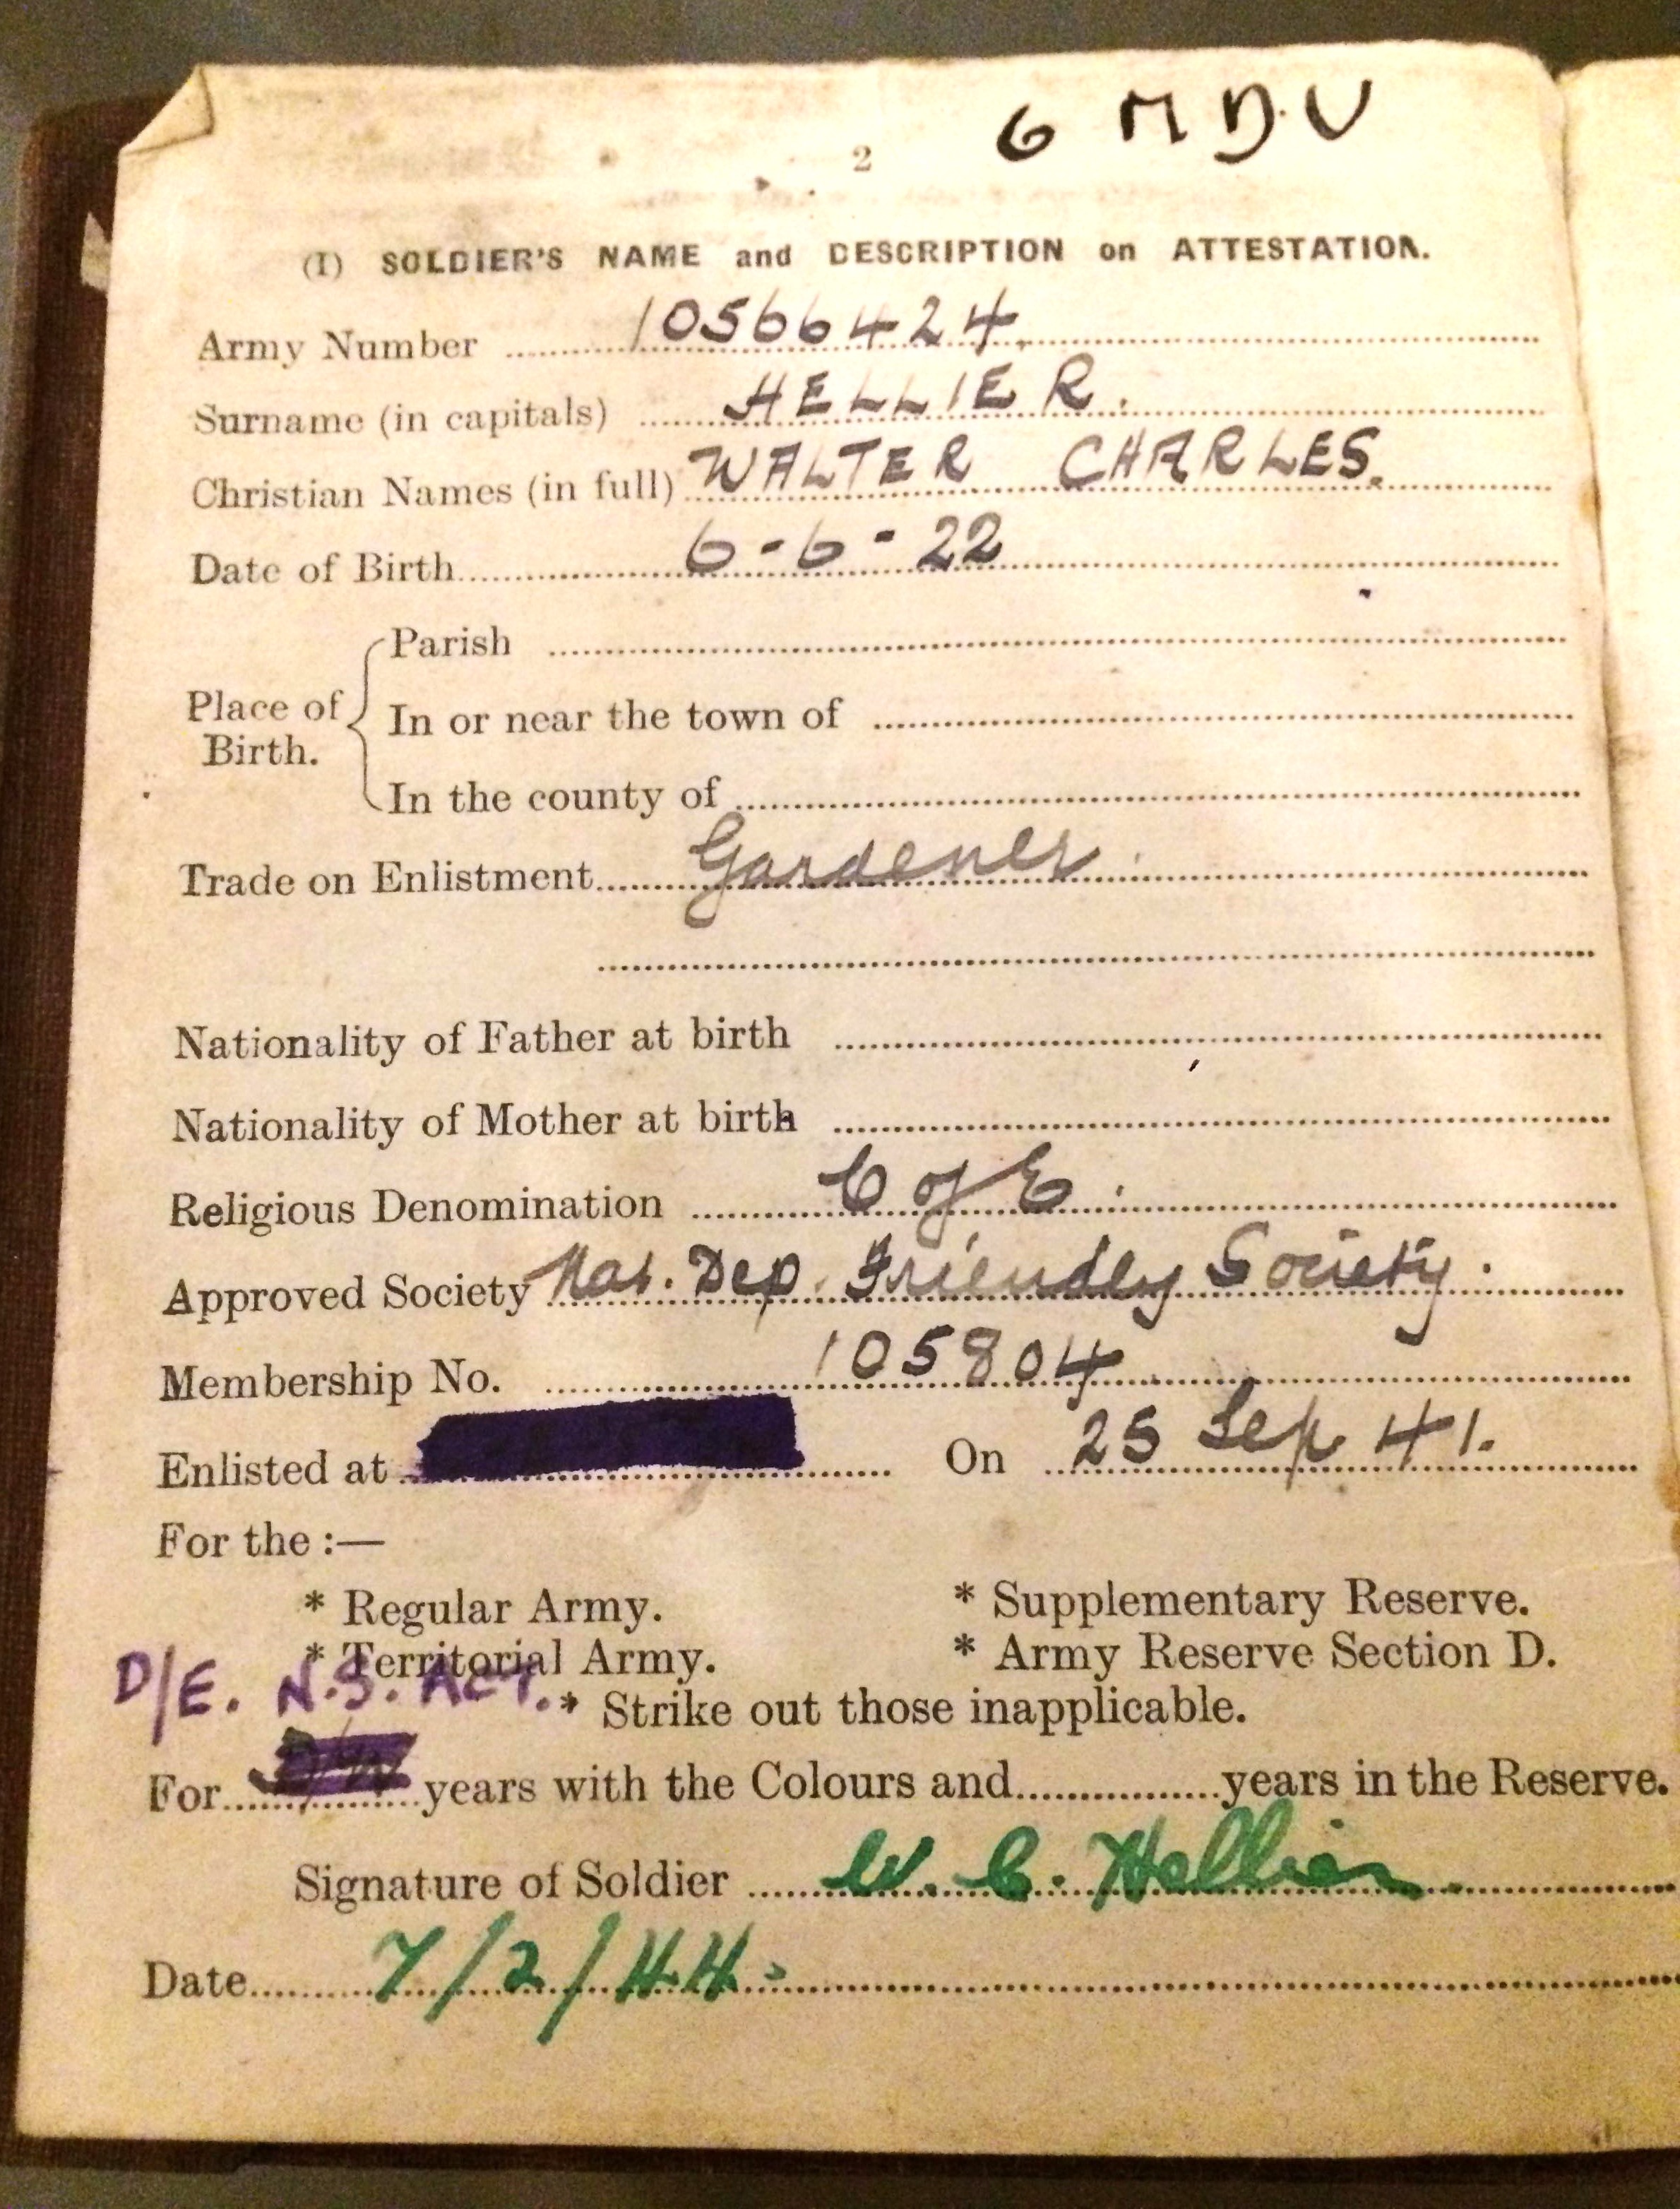 6 M D U
2
(I) SOLDIER'S NAME and DESCRIPTION on ATTESTATION.
Army Number 10566424.
Surname (in capitals) HELLIER.
Christian Names (in full) WALTER CHARLES.
Date of Birth 6-6-22
Place of Birth.
Parish
In or near the town of
In the county of
Trade on Enlistment Gardener.
Nationality of Father at birth
Nationality of Mother at birth
Religious Denomination C of E.
Approved Society Nat. Dep. Friendly Society.
Membership No. 105804
Enlisted at On 25 Sep 41.
For the :—
* Regular Army. * Supplementary Reserve.
* Territorial Army. * Army Reserve Section D.
D/E. N.S. ACT. * Strike out those inapplicable.
For years with the Colours and years in the Reserve.
Signature of Soldier W. C. Hellier.
Date 7/2/44.